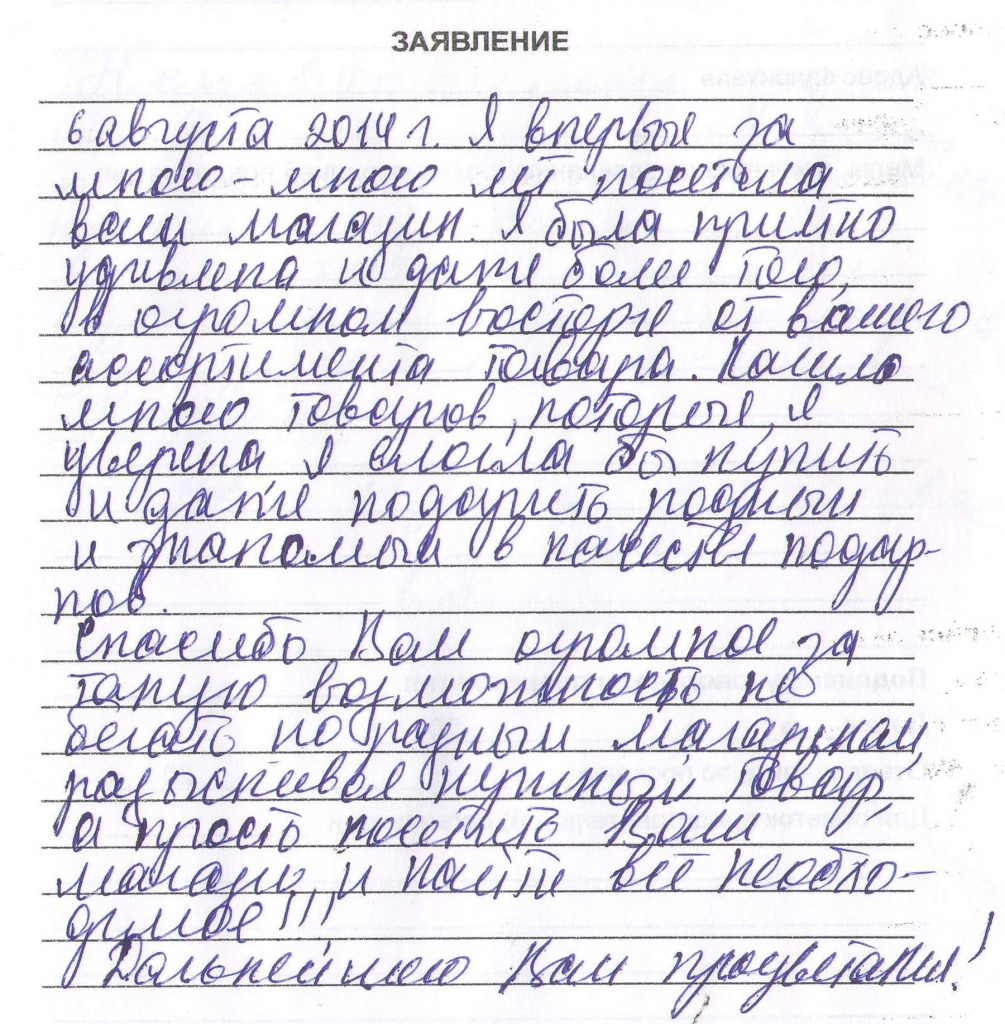 ЗАЯВЛЕНИЕ
6 августа 2014 г. Я впервые за
много много лет посетила
ваш магазин. Я была приятно
удивлена и даже более того,
в огромном восторге от вашего
ассортимента товара. Нашла
много товаров, которые, я
уверена я смогла бы купить
и даже подарить родным
и знакомым в качестве подар-
ков.
Спасибо Вам огромное за
такую возможность не
бегать по разным магазинам,
разыскивая нужный товар,
а просто посетить Ваш
магазин и найти всё необхо-
димое!!!
Дальнейшего Вам процветания!